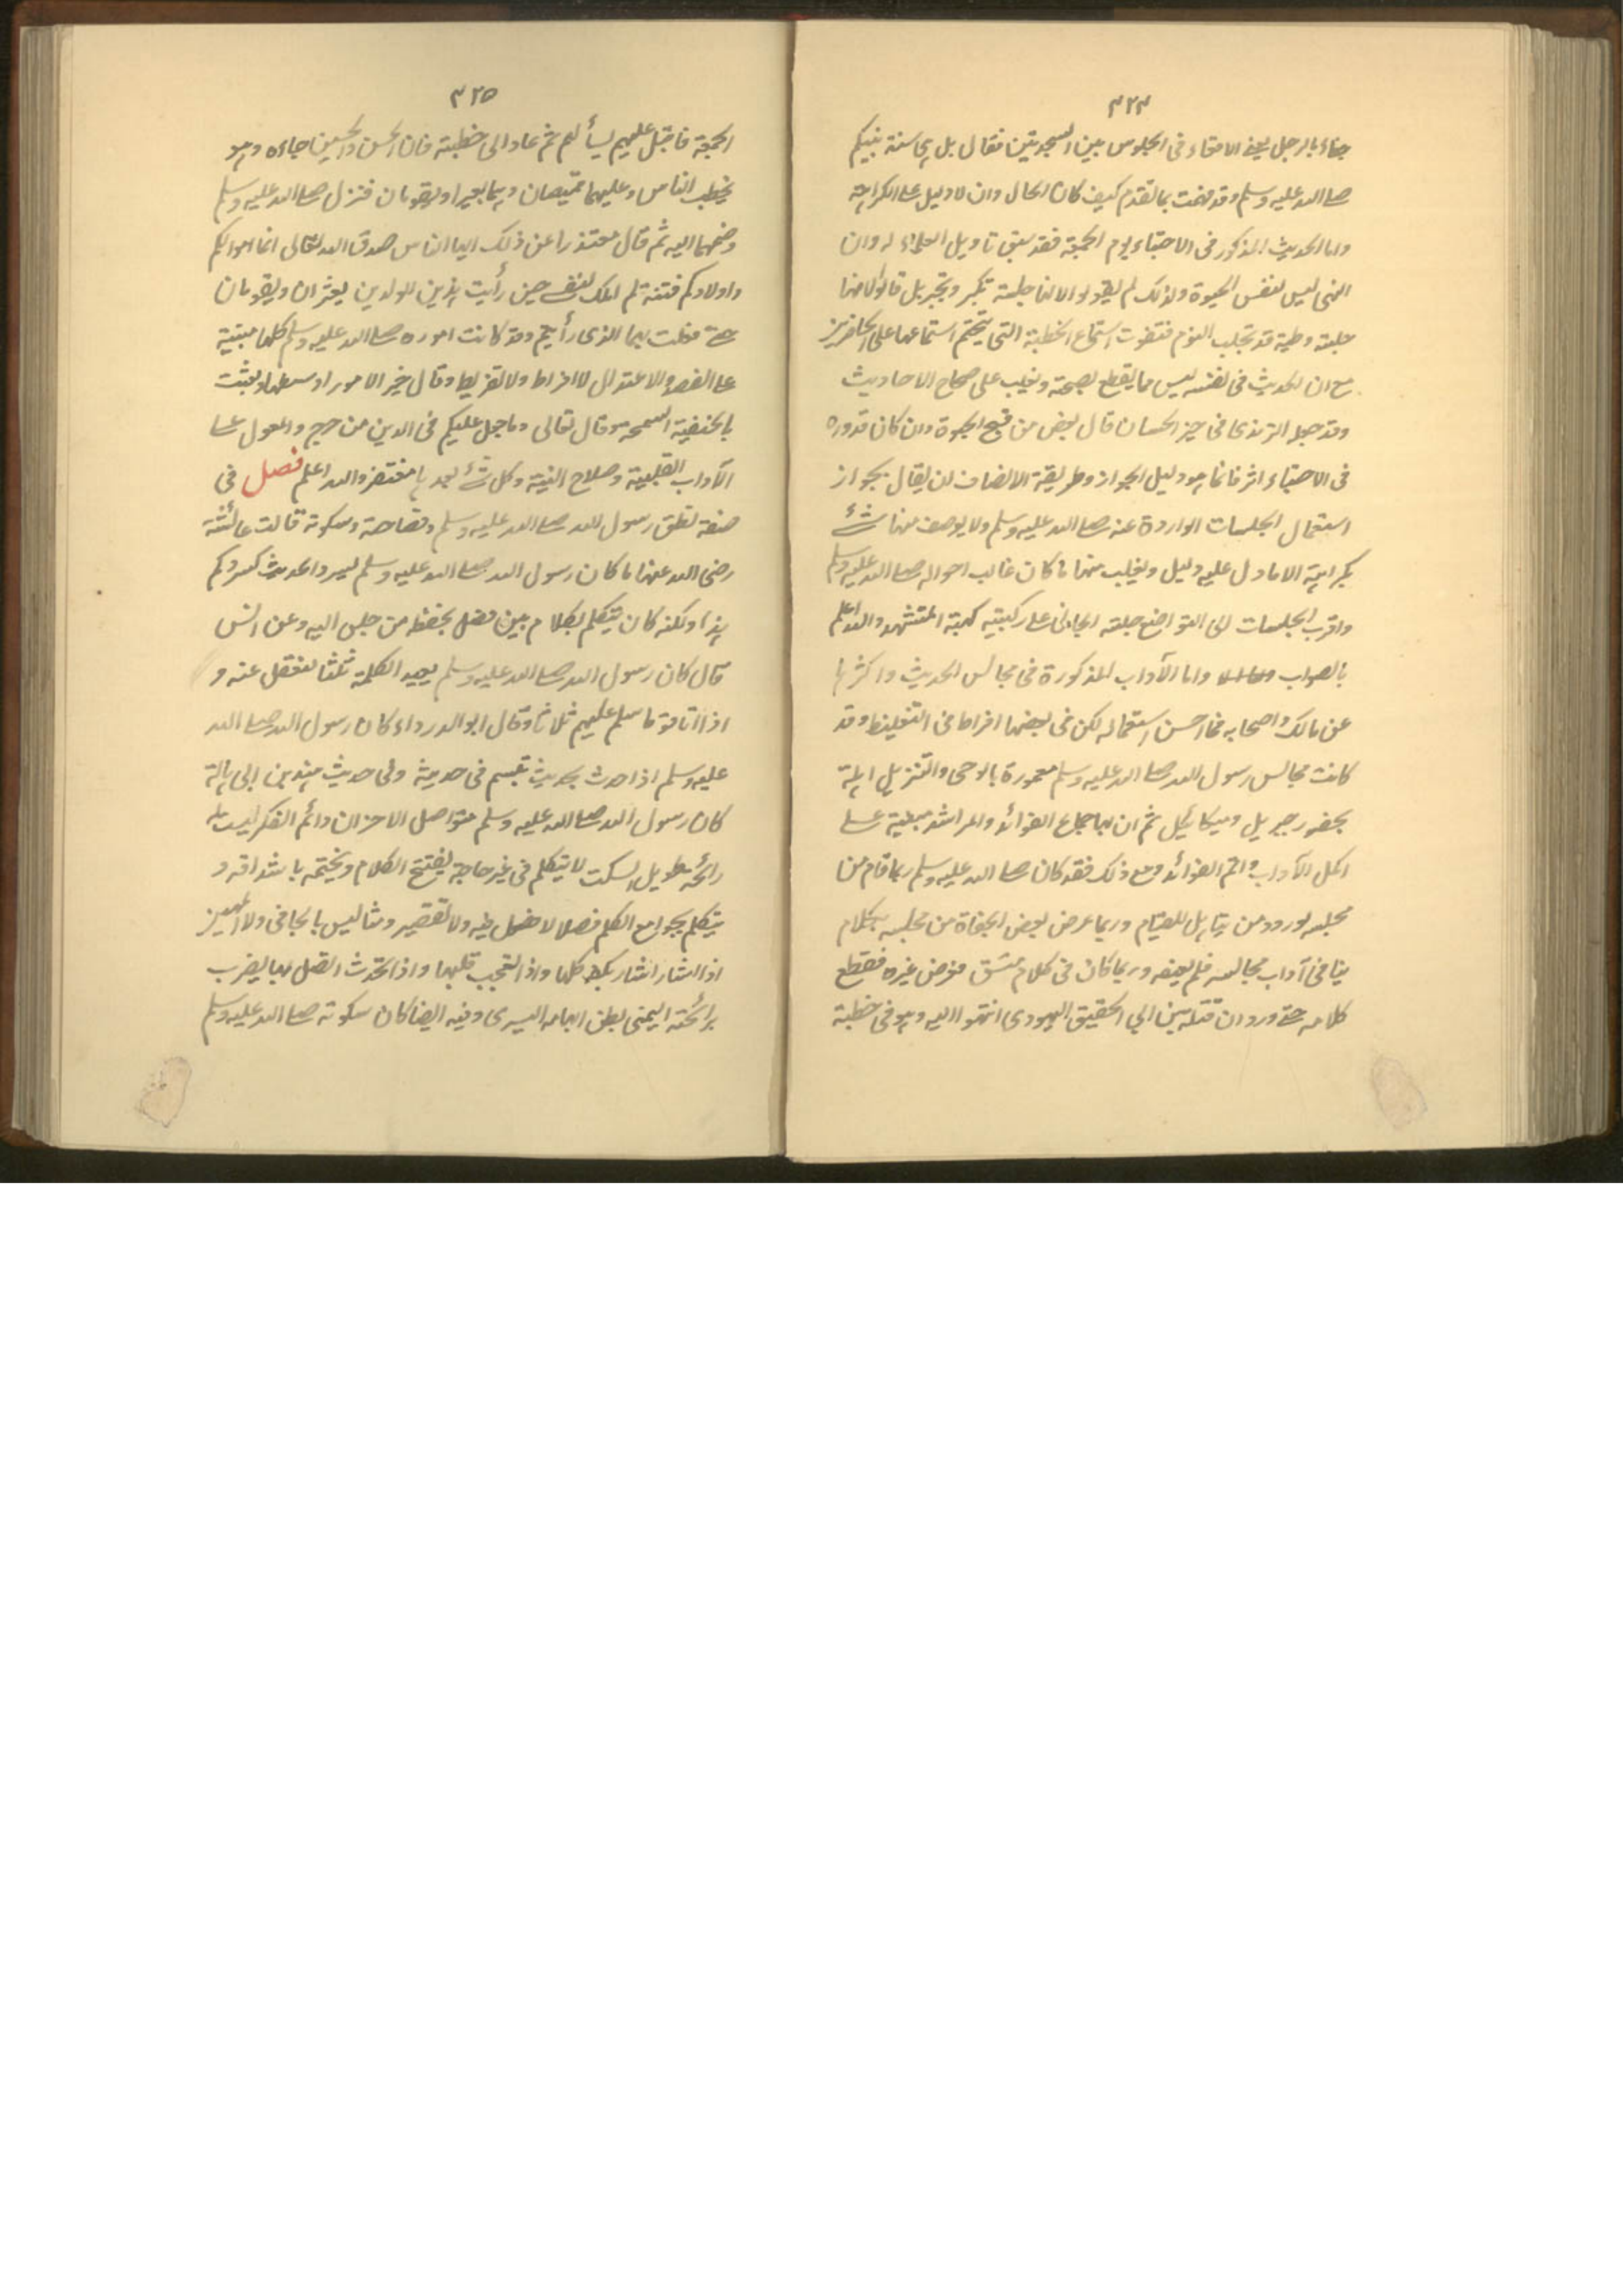 ٣٢٤
جفاء بالرجل يعني الاقعاء في الجلوس بين السجدتين فقال بل هي سنة نبيكم
صلى الله عليه وسلم وقد فهمت بما تقدم كيف كان الحال وان لا دليل على الكراهة
واما الحديث المذكور في الاحتباء يوم الجمعة فقد سبق تاويل العلماء له وان
النهي ليس لنفس الحبوة ولذلك لم يقولوا لانها جلسة تكبر وتجبر بل قالوا لانها
جلسة وطية قد تجلب النوم فتفوت استماع الخطبة التي تحتم استماعها على الحاضرين
مع ان الحديث في نفسه ليس مما يقطع بصحته ويغلب على صحاح الاحاديث
وقد جعله الترمذي في حيز الحسان قال بعض من قبح الحبوة وان كان قد ورد
في الاحتباء اثر فانما هو دليل الجواز وطريقة الانصاف ان يقال بجواز
استعمال الجلسات الواردة عنه صلى الله عليه وسلم ولا يوصف منها شئ
بكراهية الا ما دل عليه دليل ويغلب منها ما كان غالب احواله صلى الله عليه وسلم
واقرب الجلسات الى التواضع جلسة الجاثي على ركبتيه كهيئة المتشهد والله اعلم
بالصواب واما الآداب المذكورة في مجالس الحديث واكثرها
عن مالك واصحابه فما احسن استعماله لكن في بعضها افراط في التغليظ وقد
كانت مجالس رسول الله صلى الله عليه وسلم معمورة بالوحي والتنزيل اهلة
بحضور جبريل وميكائيل ثم انها جماع الفوائد والمراشد مبنية على
اكمل الآداب واتم الفوائد ومع ذلك فقد كان صلى الله عليه وسلم ربما قام من
مجلسه لورود من يتاهل للقيام وربما عرض بعض الجفاة من مجلسه بكلام
ينافي آداب مجالسه فلم يعنفه وربما كان في كلام متسق فعرض غيره فقطع
كلامه حتى ورد ان قتلة ابن ابي الحقيق اليهودي انتهوا اليه وهو في خطبة
٣٢٥
الجمعة فاقبل عليهم يسألهم ثم عاد الى خطبته فان الحسن والحسين جاءه وهو
يخطب الناس وعليهما قميصان وهما يعثران ويقومان فنزل صلى الله عليه وسلم
وضمهما اليه ثم قال معتذرا عن ذلك ايها الناس صدق الله تعالى انما اموالكم
واولادكم فتنة لم املك نفسي حين رأيت هذين الولدين يعثران ويقومان
حتى فعلت بهما الذي رأيتم وقد كانت اموره صلى الله عليه وسلم كلها مبنية
على القصد والاعتدال لا افراط ولا تفريط وقال خير الامور اوسطها وبعثت
بالحنيفية السمحة وقال تعالى وما جعل عليكم في الدين من حرج والمعول على
الآداب القلبية وصلاح النية وكل شئ بعدها مغتفر والله اعلم فصل في
صفة نطق رسول الله صلى الله عليه وسلم وفصاحته وسكوته قالت عائشة
رضى الله عنها ما كان رسول الله صلى الله عليه وسلم يسرد الحديث كسردكم
هذا ولكنه كان يتكلم بكلام بين فصل يحفظه من جلس اليه وعن انس
قال كان رسول الله صلى الله عليه وسلم يعيد الكلمة ثلثا لتعقل عنه و
اذا اتا قوما سلم عليهم ثلاثا وقال ابو الدرداء كان رسول الله صلى الله
عليه وسلم اذا حدث بحديث تبسم في حديثه وفي حديث هند بن ابي هالة
كان رسول الله صلى الله عليه وسلم متواصل الاحزان دائم الفكر ليست له
رائحة طويل السكت لا يتكلم في غير حاجة يفتتح الكلام ويختمه باشداقه و
يتكلم بجوامع الكلم فصلا لا فضول فيه ولا تقصير دمثا ليس بالجافي ولا المهين
اذا اشار اشار بكفه كلها واذا تعجب قلبها واذا تحدث اتصل بها يضرب
براحته اليمنى بطن ابهامه اليسرى وفيه ايضا كان سكوته صلى الله عليه وسلم